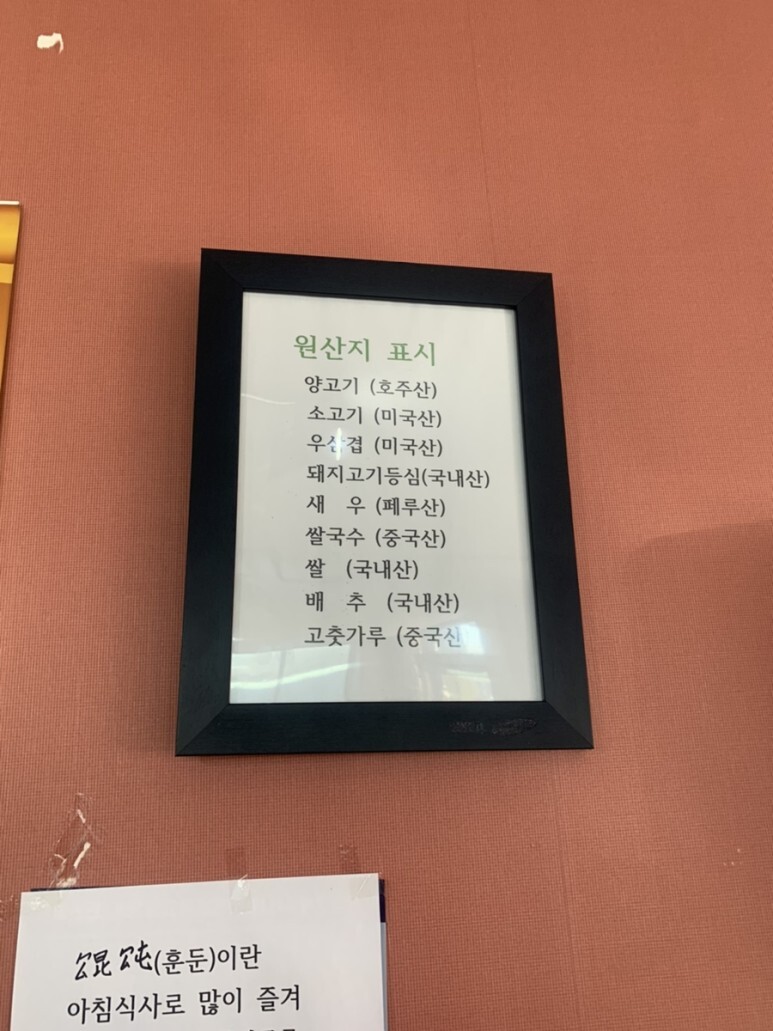 원산지 표시
양고기 (호주산)
소고기 (미국산)
우삼겹 (미국산)
돼지고기등심(국내산)
새 우 (페루산)
쌀국수 (중국산)
쌀 (국내산)
배 추 (국내산)
고춧가루 (중국산
馄饨(훈둔)이란
아침식사로 많이 즐겨